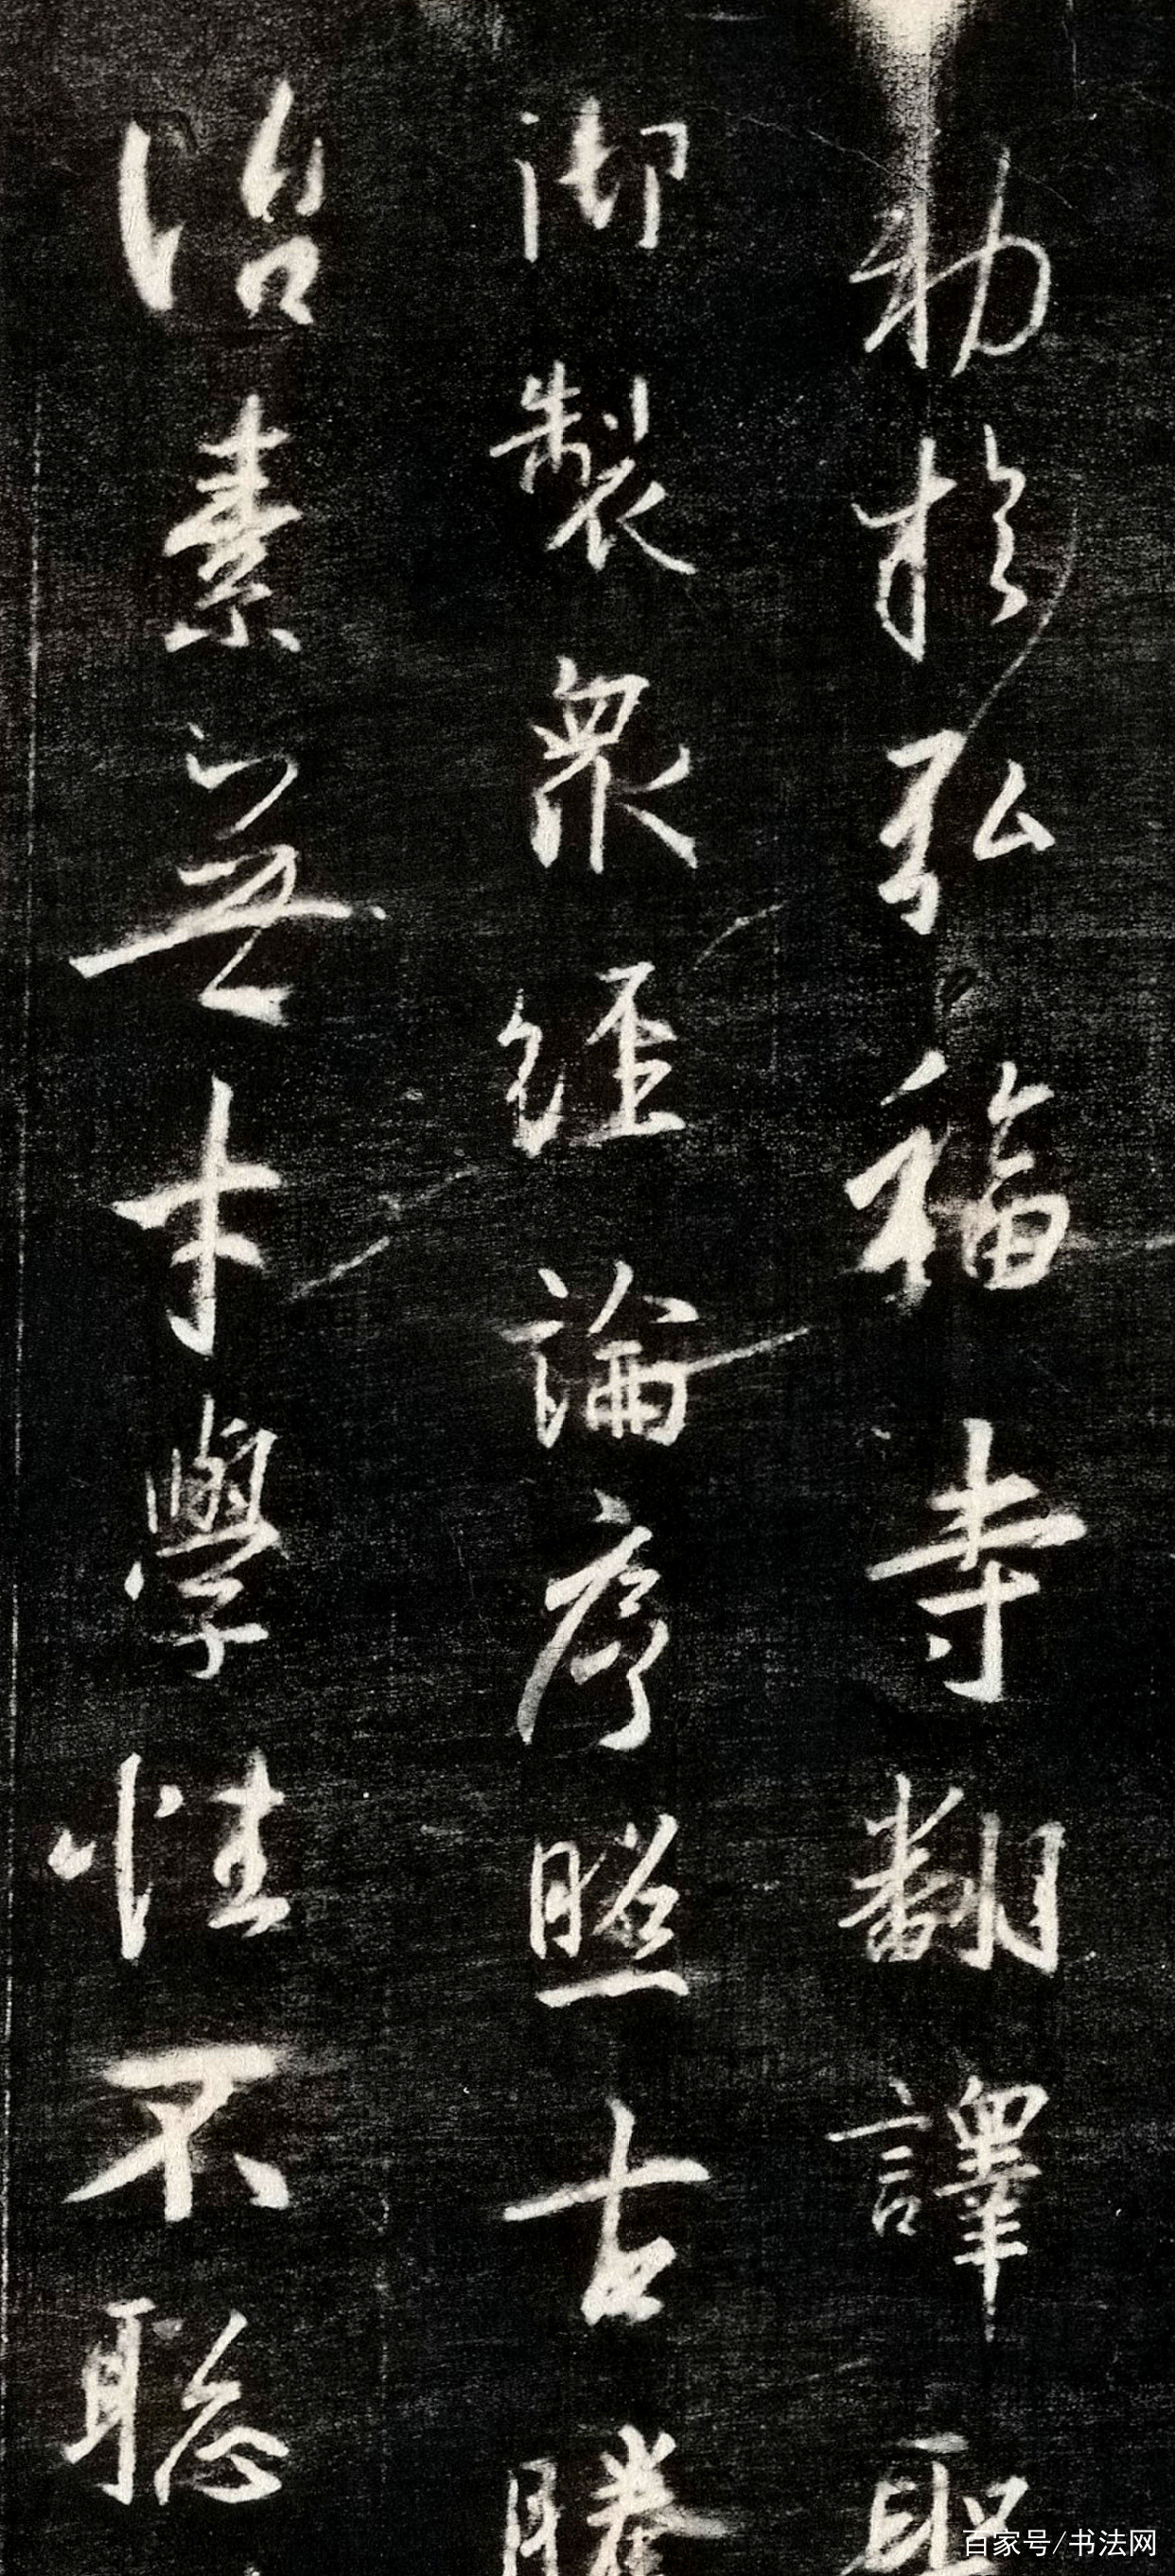 勅於弘福寺翻譯聖
御製眾經論序照古騰
治素無才學性不聰
百家号/书法网